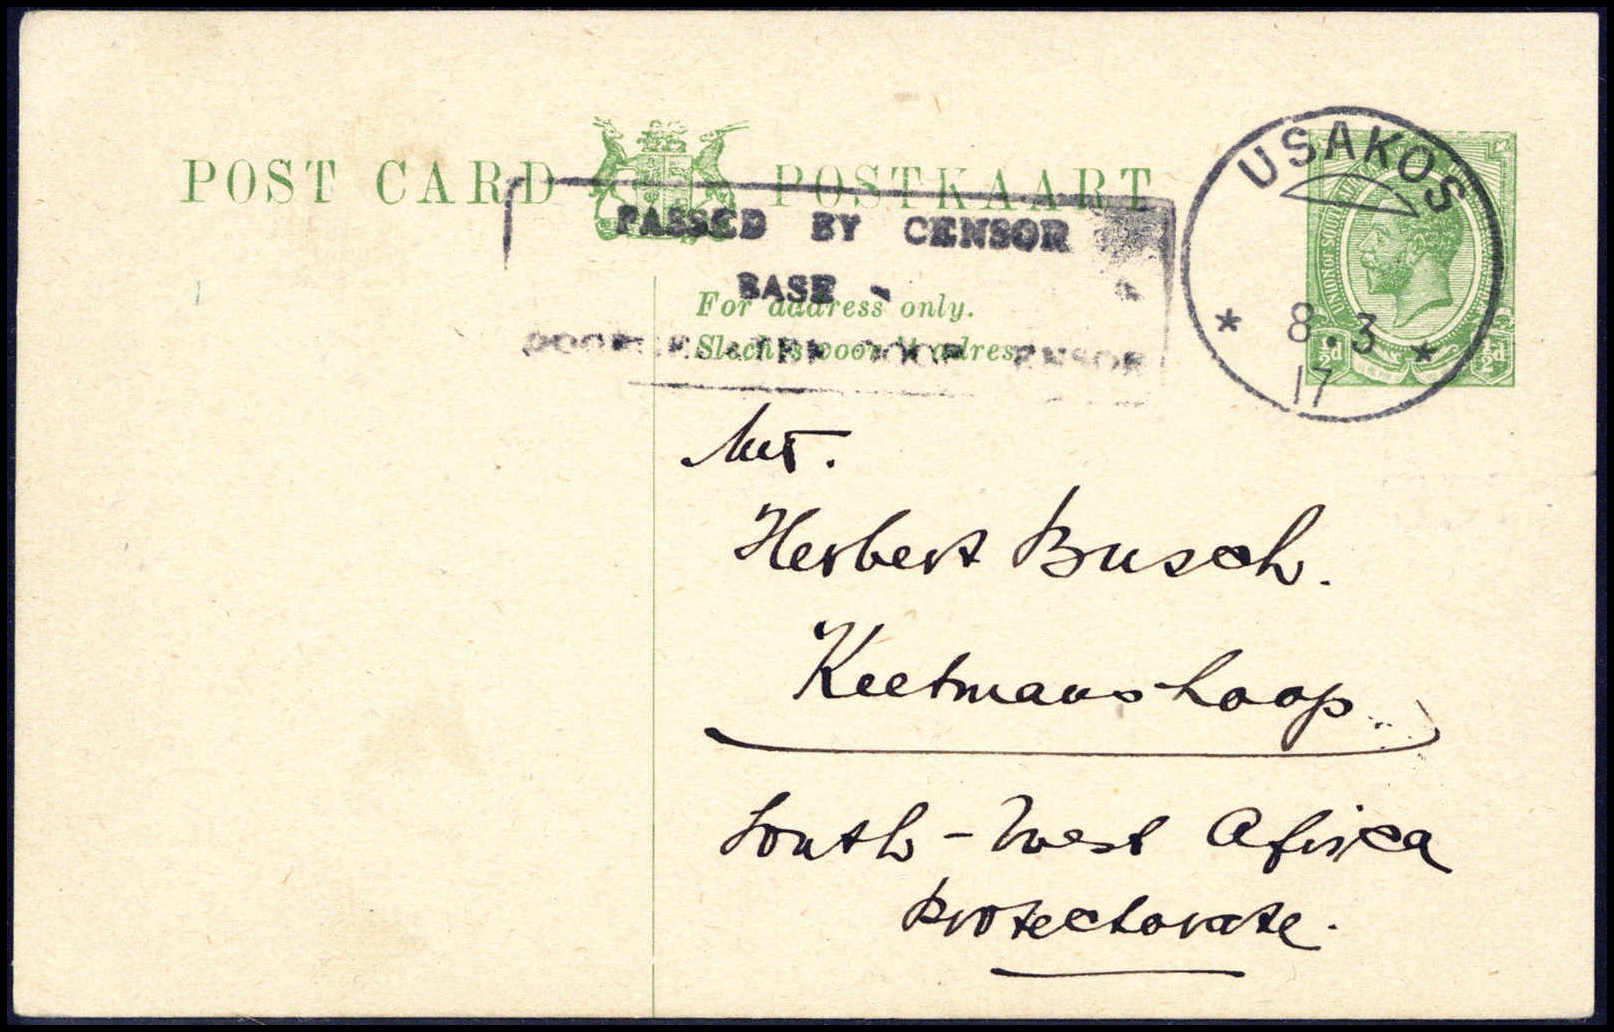 POST CARD POSTKAART
USAKOS
* 8.3 *
17
UNION OF SOUTH
½d ½d
PASSED BY CENSOR
BASE
For address only.
Slechts voor 't adres
DOOR CENSOR
Mr.
Herbert Busch.
Keetmanshoop.
South-West Africa
Protectorate.